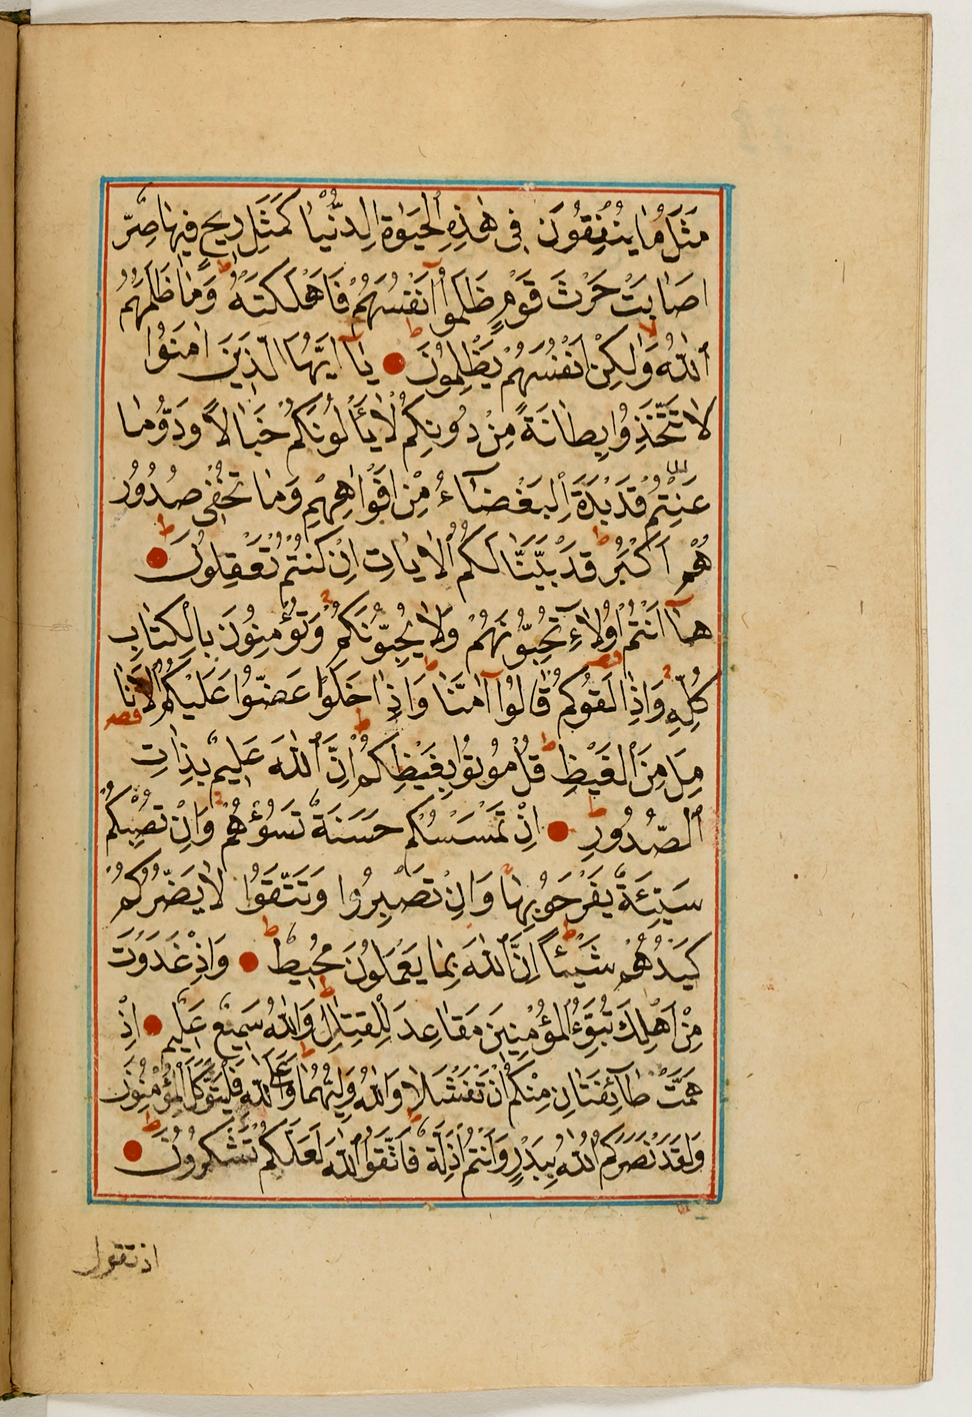 مَثَلُ مَا يُنْفِقُونَ فِى هٰذِهِ الْحَيٰوةِ الدُّنْيَا كَمَثَلِ رِيحٍ فِيهَا صِرٌّ
اَصَابَتْ حَرْثَ قَوْمٍ ظَلَمُوا اَنْفُسَهُمْ فَاَهْلَكَتْهُ وَمَا ظَلَمَهُمُ
اللّٰهُ وَلٰكِنْ اَنْفُسَهُمْ يَظْلِمُونَ يَا اَيُّهَا الَّذِينَ اٰمَنُوا
لَا تَتَّخِذُوا بِطَانَةً مِنْ دُونِكُمْ لَا يَأْلُونَكُمْ خَبَالًا وَدُّوا مَا
عَنِتُّمْ قَدْ بَدَتِ الْبَغْضَاءُ مِنْ اَفْوَاهِهِمْ وَمَا تُخْفِى صُدُورُ
هُمْ اَكْبَرُ قَدْ بَيَّنَّا لَكُمُ الْاٰيَاتِ اِنْ كُنْتُمْ تَعْقِلُونَ
هَا اَنْتُمْ اُولَاءِ تُحِبُّونَهُمْ وَلَا يُحِبُّونَكُمْ وَتُؤْمِنُونَ بِالْكِتَابِ
كُلِّهِ وَاِذَا لَقُوكُمْ قَالُوا اٰمَنَّا وَاِذَا خَلَوْا عَضُّوا عَلَيْكُمُ الْاَنَا
مِلَ مِنَ الْغَيْظِ قُلْ مُوتُوا بِغَيْظِكُمْ اِنَّ اللّٰهَ عَلِيمٌ بِذَاتِ
الصُّدُورِ اِنْ تَمْسَسْكُمْ حَسَنَةٌ تَسُؤْهُمْ وَاِنْ تُصِبْكُمْ
سَيِّئَةٌ يَفْرَحُوا بِهَا وَاِنْ تَصْبِرُوا وَتَتَّقُوا لَا يَضُرُّكُمْ
كَيْدُهُمْ شَيْئًا اِنَّ اللّٰهَ بِمَا يَعْمَلُونَ مُحِيطٌ وَاِذْ غَدَوْتَ
مِنْ اَهْلِكَ تُبَوِّئُ الْمُؤْمِنِينَ مَقَاعِدَ لِلْقِتَالِ وَاللّٰهُ سَمِيعٌ عَلِيمٌ اِذْ
هَمَّتْ طَائِفَتَانِ مِنْكُمْ اَنْ تَفْشَلَا وَاللّٰهُ وَلِيُّهُمَا وَعَلَى اللّٰهِ فَلْيَتَوَكَّلِ الْمُؤْمِنُونَ
وَلَقَدْ نَصَرَكُمُ اللّٰهُ بِبَدْرٍ وَاَنْتُمْ اَذِلَّةٌ فَاتَّقُوا اللّٰهَ لَعَلَّكُمْ تَشْكُرُونَ
اذ تقول